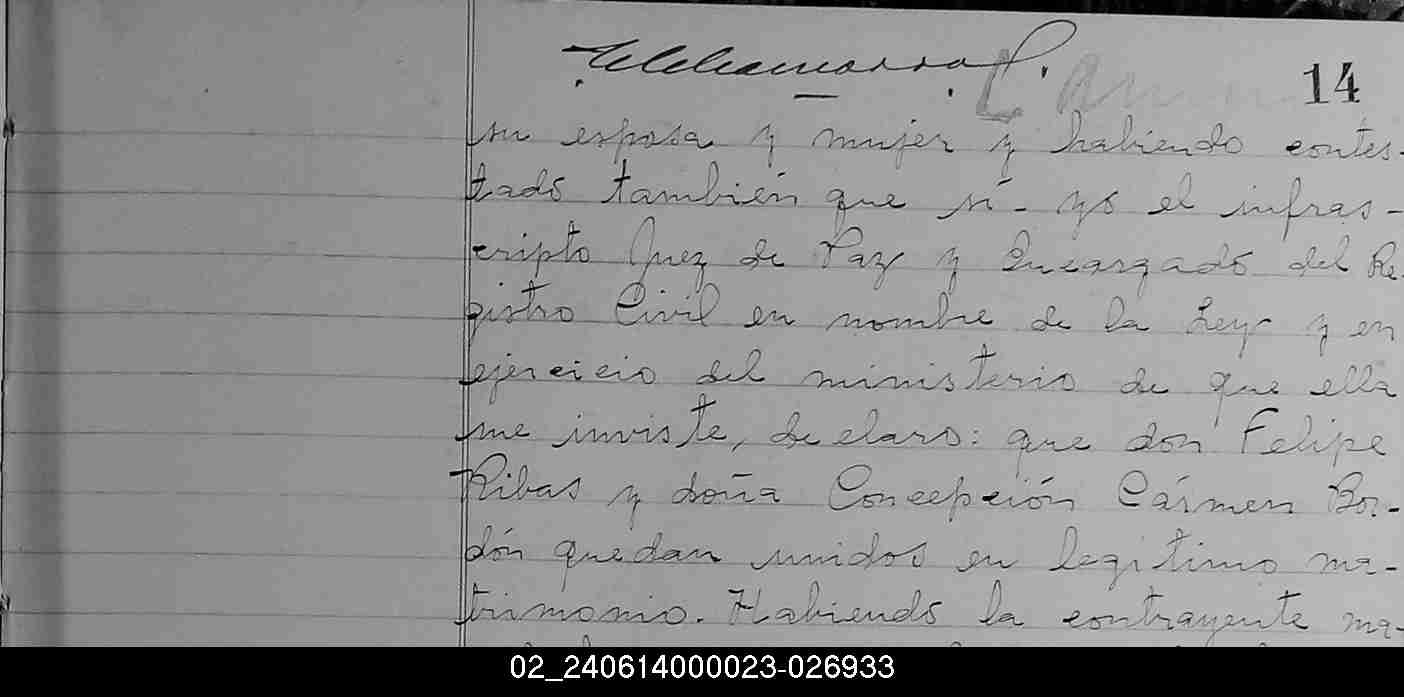 14
su esposa y mujer y habiendo contes-
tado también que sí - yo el infras-
cripto Juez de Paz y Encargado del Re-
gistro Civil en nombre de la Ley y en
ejercicio del ministerio de que ella
me inviste, declaro: que don Felipe
Ribas y doña Concepción Cármen Bor-
dón quedan unidos en legitimo ma-
trimonio. Habiendo la contrayente ma-
02_240614000023-026933